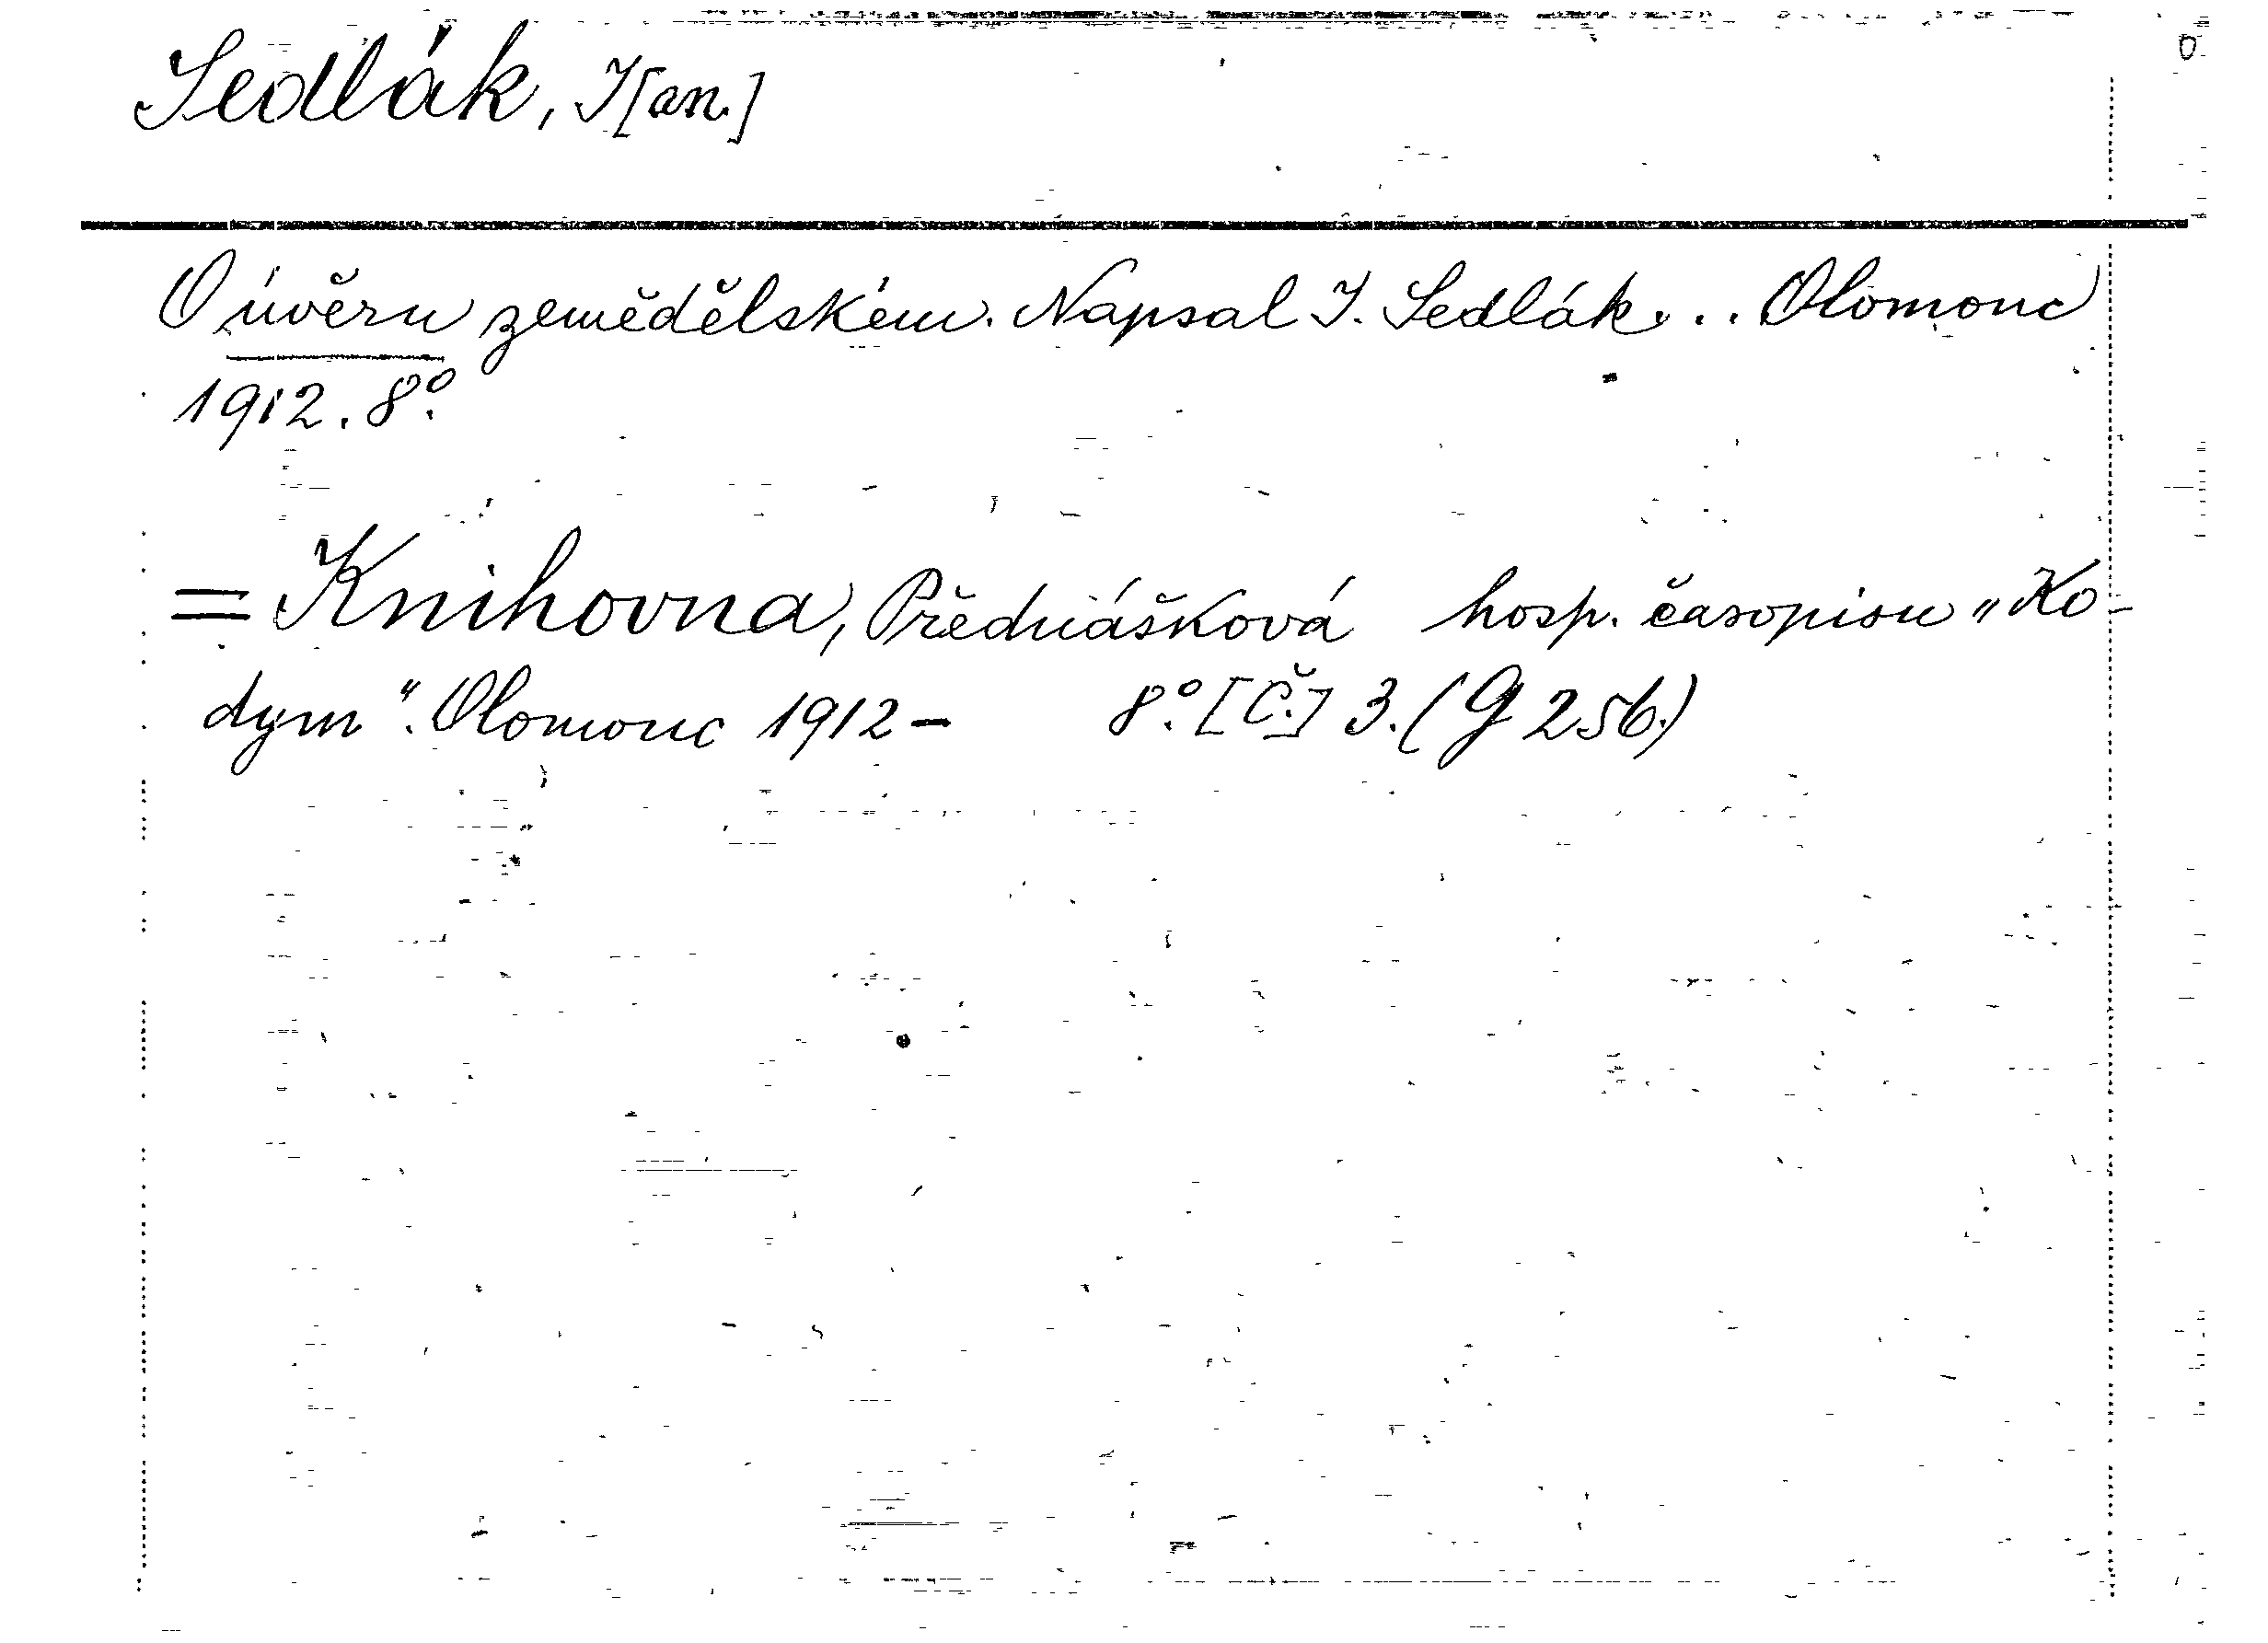 Sedlák, J[an.]
O úvěru zemědělském. Napsal J. Sedlák... Olomouc
1912. 8°.
= Knihovna, Přednášková hosp. časopisu „Ko-
dym“. Olomouc 1912– 8°. [Č.] 3. (G 256.)